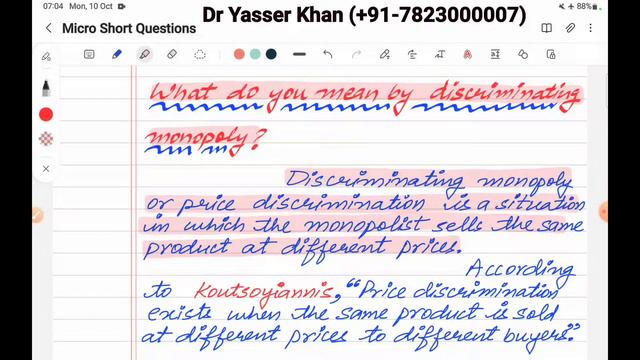 07:04 Mon, 10 Oct
88%
Dr Yasser Khan (+91-7823000007)
Micro Short Questions
What do you mean by discriminating
monopoly?
Discriminating monopoly
or price discrimination is a situation
in which the monopolist sells the same
product at different prices.
According
to Koutsoyiannis, "Price discrimination
exists when the same product is sold
at different prices to different buyers."